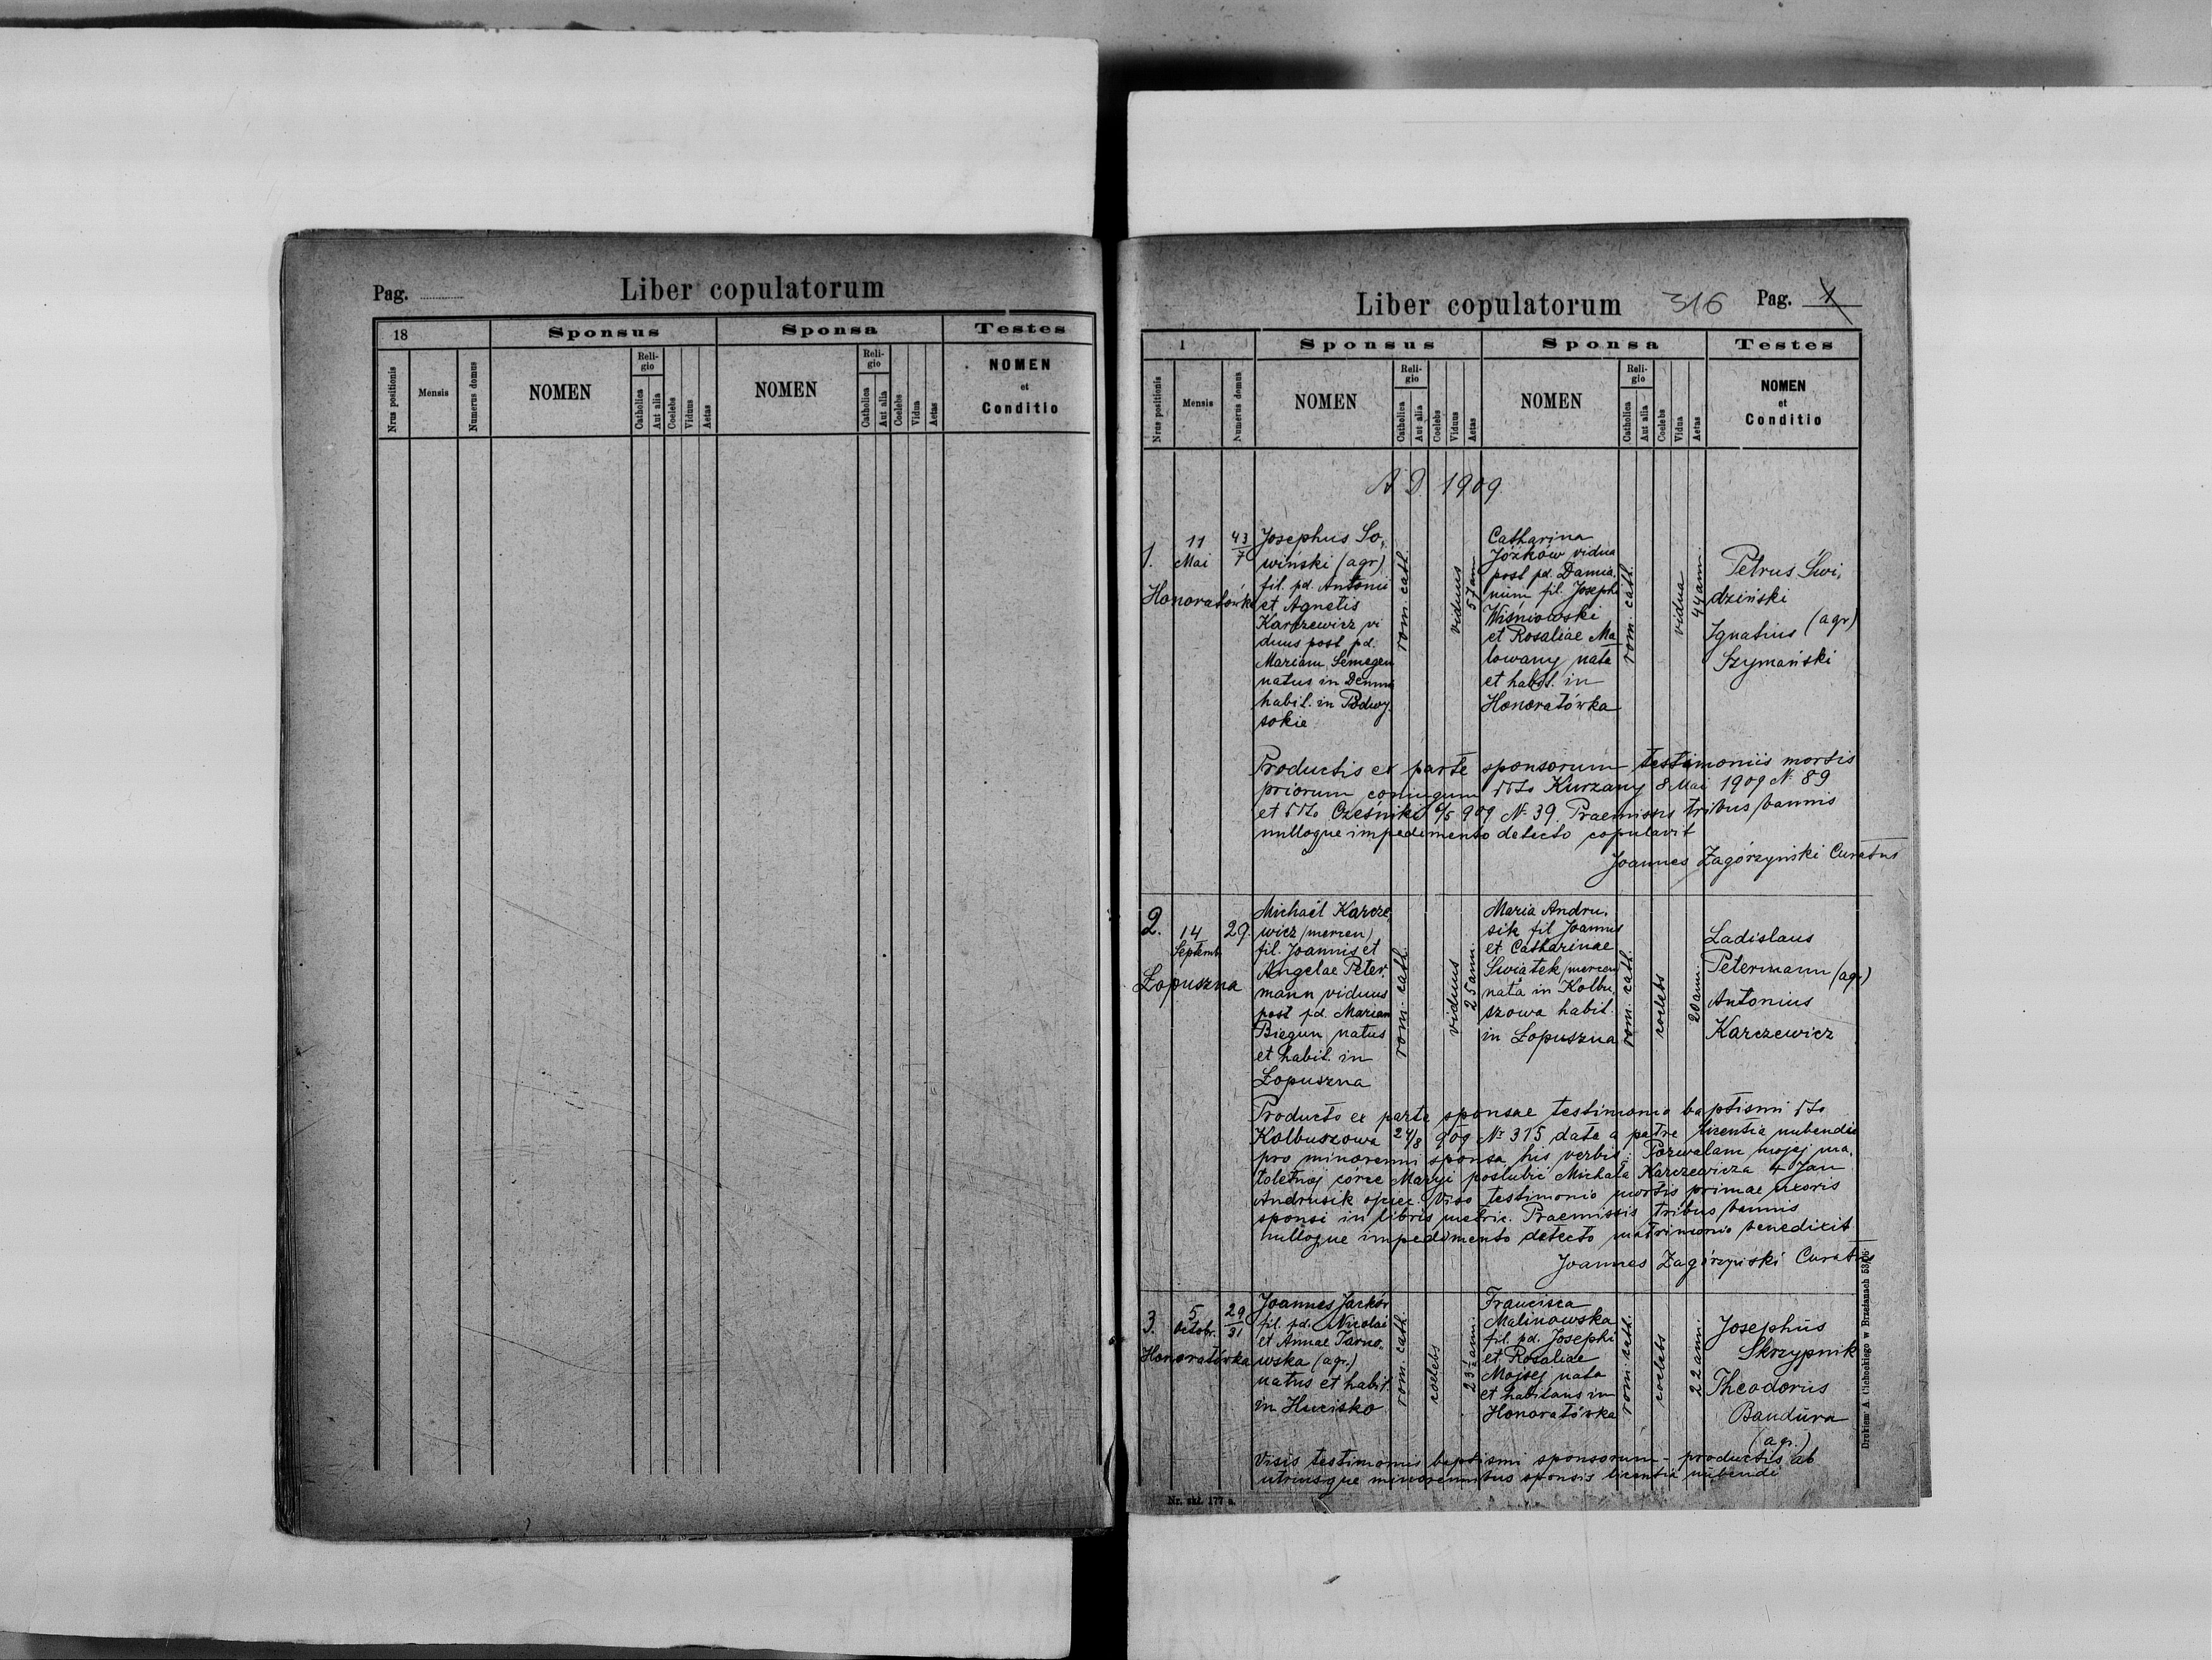 Pag.
Liber copulatorum
18
Sponsus
Sponsa
Testes
Nrus positionis
Mensis
Numerus domus
NOMEN
Religio
Catholica
Aut alia
Coelebs
Viduus
Aetas
NOMEN
Religio
Catholica
Aut alia
Coelebs
Vidua
Aetas
NOMEN
et
Conditio
Liber copulatorum
316
Pag. 1
1
Sponsus
Sponsa
Testes
Nrus positionis
Mensis
Numerus domus
NOMEN
Religio
Catholica
Aut alia
Coelebs
Viduus
Aetas
NOMEN
Religio
Catholica
Aut alia
Coelebs
Vidua
Aetas
NOMEN
et
Conditio
A D 1909
1.
11
Mai
43
7
Honoratówka
Josephus So,
wiński (agr)
fil. pd. Antonii
et Agnetis
Karczewicz vi
duus post pd.
Mariam Semegen
natus in
habit. in Podwy
sokie
rom. cath.
viduus
57 ann
Catharina
Józków vidua
post pd. Damia,
num fil. Josephi
Wiśniowski
et Rosaliae Ma
lowany nata
et habit. in
Honoratówka
rom. cath.
vidua
44 ann.
Petrus Świ,
dziński
Ignatius (agr)
Szymański
Productis ex parte sponsorum testimoniis mortis
priorum conjugum ddto Kurzany 8 Mai 1909 N. 89
et ddto Cześniki 6/5 909 N. 39. Praemissis tribus bannis
nulloque impedimento detecto copulavit
Joannes Zagórzyński Curatus
2.
14
Septemb.
29.
Łopuszna
Michaël Karcze,
wicz (mercen)
fil. Joannis et
Angelae Peter,
mann viduus
post pd. Mariam
Biegun natus
et habit. in
Łopuszna
rom. cath.
viduus
25 ann.
Maria Andru,
sik fil Joannis
et Catharinae
Świątek (mercen)
nata in Kolbu,
szowa habit.
in Łopuszna
rom. cath.
coelebs
20 ann.
Ladislaus
Petermann (agr)
Antonius
Karczewicz
Producto ex parte sponsae testimonio baptismi ddto
Kolbuszowa 24/8 909 Nr 315 data a patre licentia nubendi
pro minorenni sponsa his verbis: Pozwalam mojej ma,
łoletniej córce Maryi poślubić Michała Karczewicza + Jan
Andrusik ojciec. Viso testimonio mortis primae uxoris
sponsi in libris metric. Praemissis tribus bannis
nulloque impedimento detecto matrimonio benedixit
Joannes Zagórzyński Curatus
3.
5
Octobr.
29
31
Honoratówka
Joannes Jackór
fil. pd. Nicolai
et Annae Tarno,
wska (agr.)
natus et habit.
in Hucisko
rom. cath.
coelebs
23 ann.
Francisca
Malinowska
fil. pd. Josephi
et Rosaliae
Mojsej nata
et habitans in
Honoratówka
rom. cath.
coelebs
22 ann.
Josephus
Skrzypnik
Theodorus
Bandura
(agr.)
Visis testimoniis baptismi sponsorum - productis ab
utriusque minorennibus sponsis licentia nubendi
Nr. skł. 177 a.
Drukiem A. Cichockiego w Brzeżanach 53/06